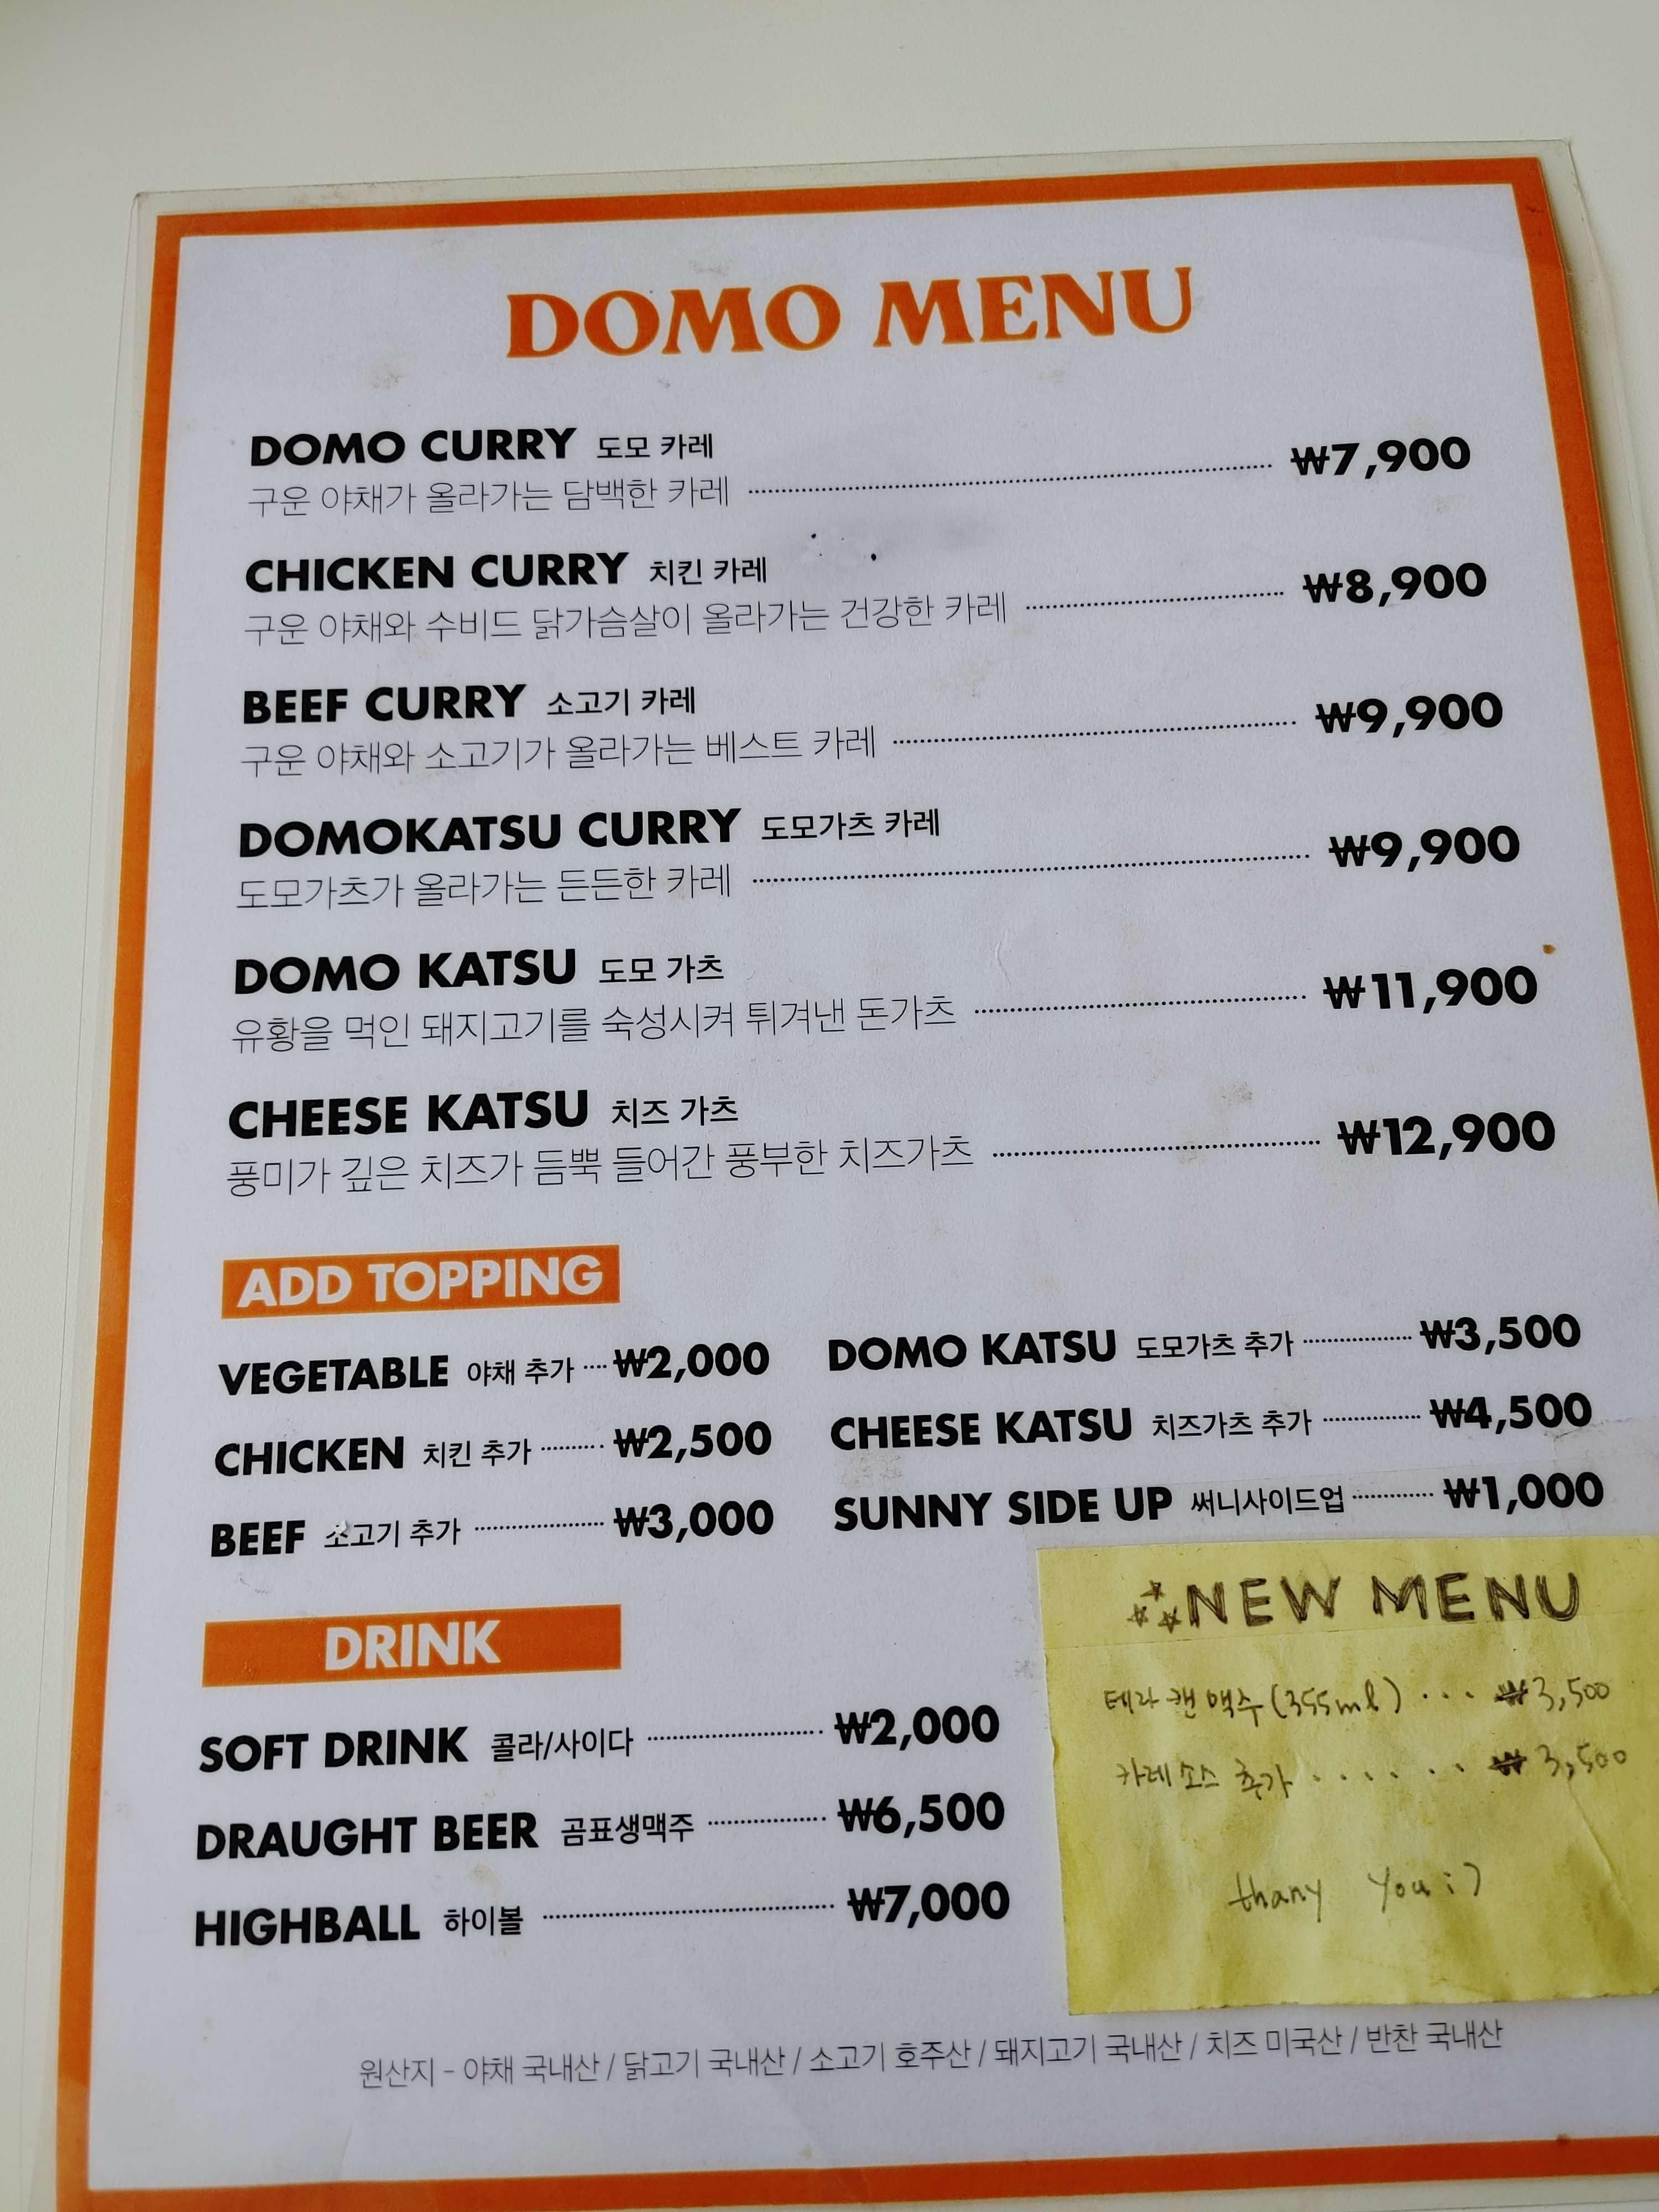 DOMO MENU
DOMO CURRY 도모 카레
구운 야채가 올라가는 담백한 카레 ₩7,900
CHICKEN CURRY 치킨 카레
구운 야채와 수비드 닭가슴살이 올라가는 건강한 카레 ₩8,900
BEEF CURRY 소고기 카레
구운 야채와 소고기가 올라가는 베스트 카레 ₩9,900
DOMOKATSU CURRY 도모가츠 카레
도모가츠가 올라가는 든든한 카레 ₩9,900
DOMO KATSU 도모 가츠
유황을 먹인 돼지고기를 숙성시켜 튀겨낸 돈가츠 ₩11,900
CHEESE KATSU 치즈 가츠
풍미가 깊은 치즈가 듬뿍 들어간 풍부한 치즈가츠 ₩12,900
ADD TOPPING
VEGETABLE 야채 추가 ₩2,000
CHICKEN 치킨 추가 ₩2,500
BEEF 소고기 추가 ₩3,000
DOMO KATSU 도모가츠 추가 ₩3,500
CHEESE KATSU 치즈가츠 추가 ₩4,500
SUNNY SIDE UP 써니사이드업 ₩1,000
DRINK
SOFT DRINK 콜라/사이다 ₩2,000
DRAUGHT BEER 곰표생맥주 ₩6,500
HIGHBALL 하이볼 ₩7,000
NEW MENU
테라 캔 맥주 (355ml) ... ₩3,500
카레 소스 추가 ...... ₩3,500
thany you :)
원산지 - 야채 국내산 / 닭고기 국내산 / 소고기 호주산 / 돼지고기 국내산 / 치즈 미국산 / 반찬 국내산